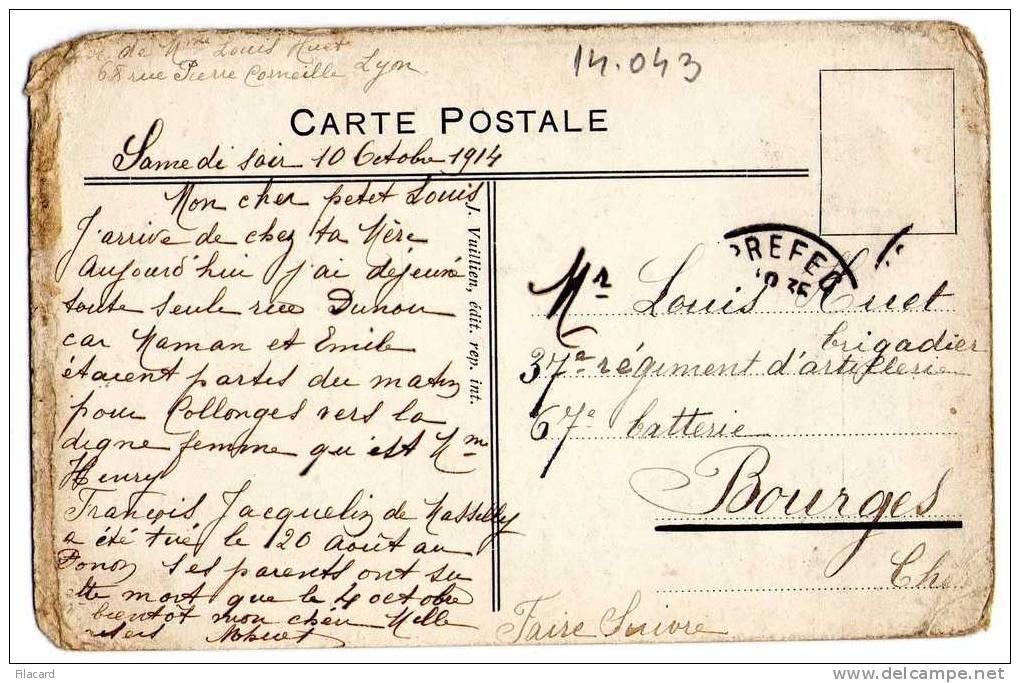 de Mme Louis Huet
68 rue Pierre Corneille Lyon
14.043
CARTE POSTALE
Samedi soir 10 Octobre 1914
Mon cher petit Louis
J'arrive de chez ta Mère
Aujourd'hui j'ai déjeuné
toute seule rue Dunoir
car Maman et Emile
étaient partis du matin
pour Collonges vers la
digne femme qu'est Mme
Henry
François Jacquelin de Massilly
a été tué le 20 août au
Donon ses parents ont su
tte mort que le 4 octobre
bientôt mon chéri Mille
J. Vuillien, édit. rep. int.
PREFEC
Mr Louis Huet
brigadier
37e régiment d'artillerie
67e batterie
Bourges
Ch
Faire Suivre
Filacard
www.delcampe.net